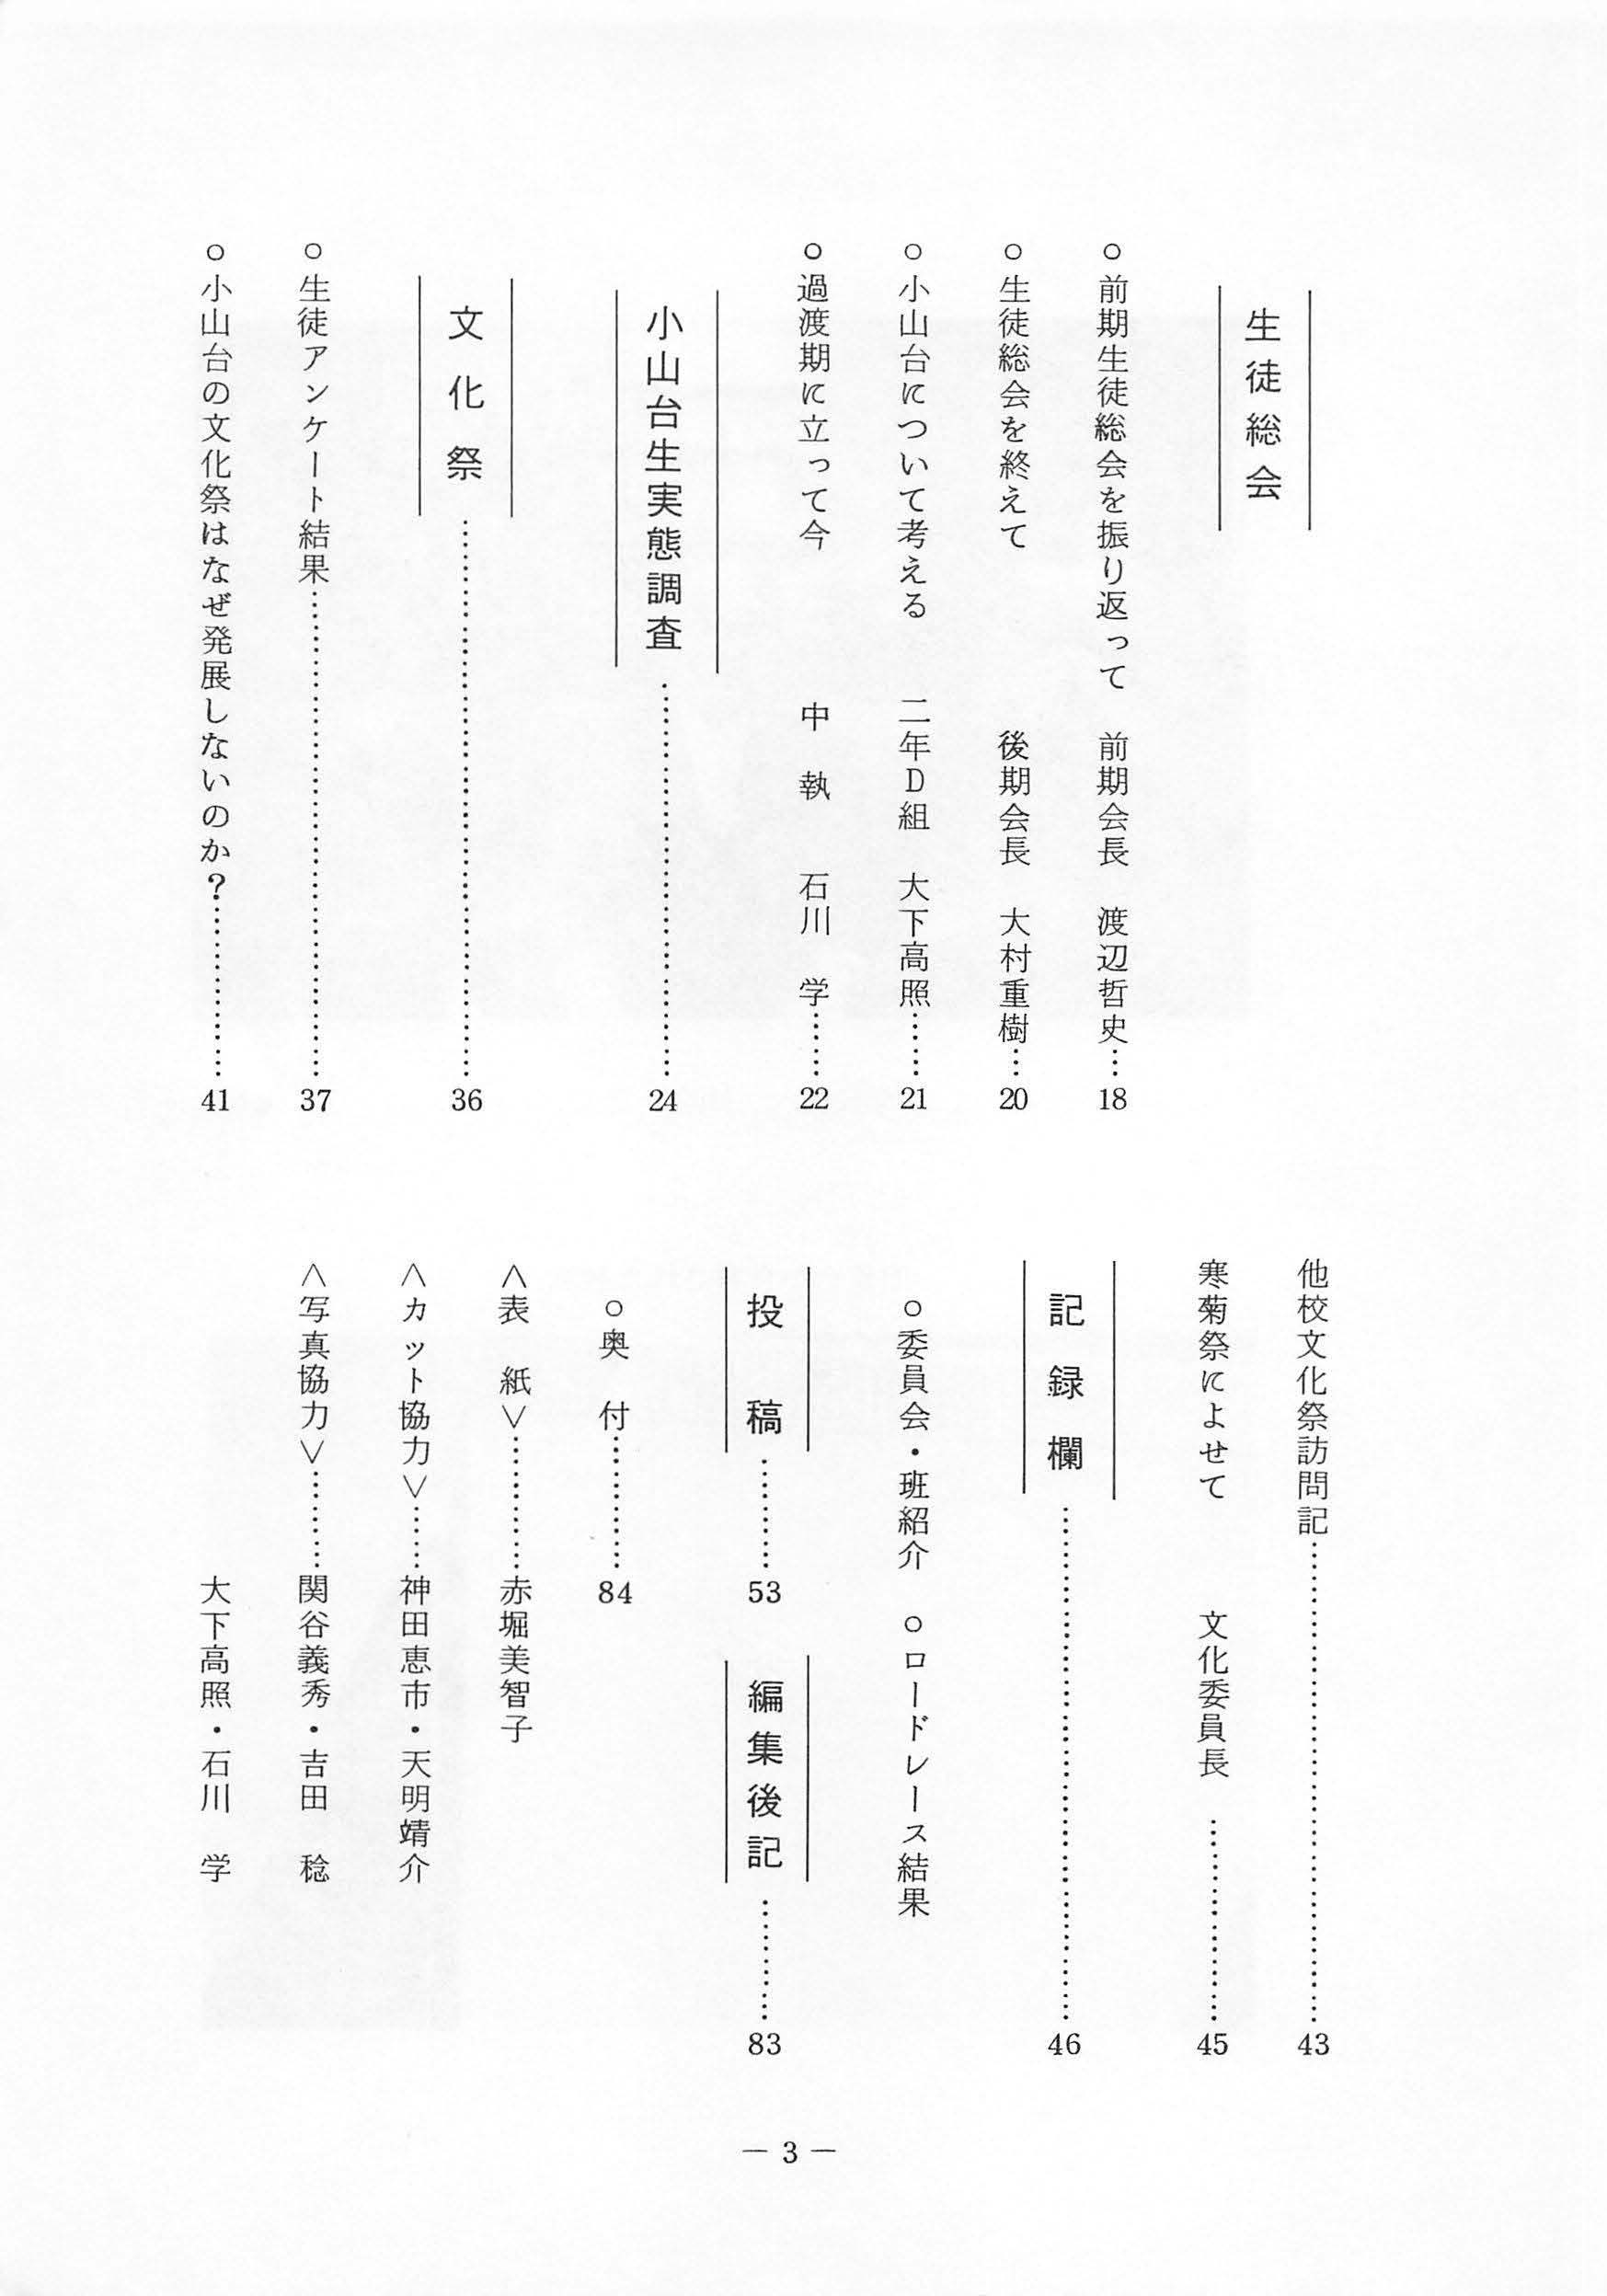 生徒総会
○前期生徒総会を振り返って　前期会長　渡辺哲史…18
○生徒総会を終えて　後期会長　大村重樹…20
○小山台について考える　二年D組　大下高照……21
○過渡期に立って今　中執　石川　学……22
小山台生実態調査……………………24
文化祭……………………………36
○生徒アンケート結果……………………………37
○小山台の文化祭はなぜ発展しないのか？…………41
他校文化祭訪問記……………………………43
寒菊祭によせて　文化委員長　…………45
記録欄……………………………46
○委員会・班紹介　○ロードレース結果
投稿………53
編集後記………83
○奥　付………84
＜表　紙＞………赤堀美智子
＜カット協力＞……神田恵市・天明靖介
＜写真協力＞………関谷義秀・吉田　稔
大下高照・石川　学
― 3 ―